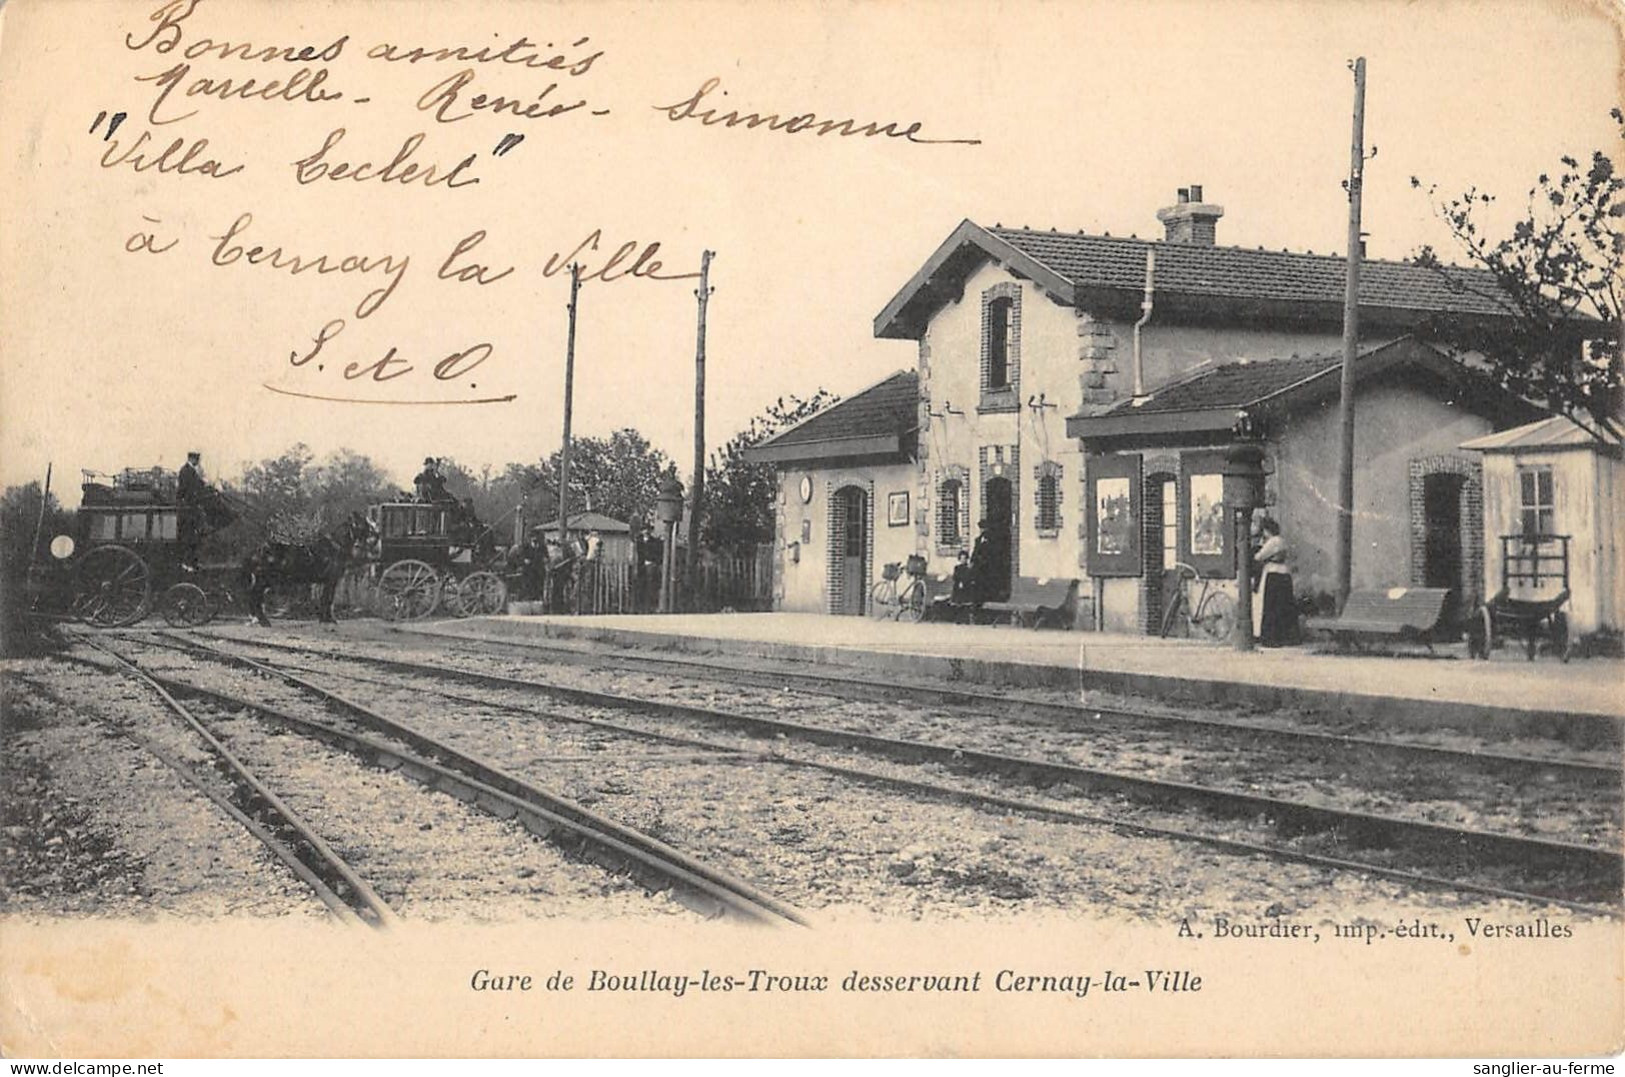 Bonnes amitiés
Marcelle - Renée - Simonne
"Villa Leclert"
à Cernay la Ville
S. et O.
A. Bourdier, imp.-édit., Versailles
Gare de Boullay-les-Troux desservant Cernay-la-Ville
sanglier-au-ferme